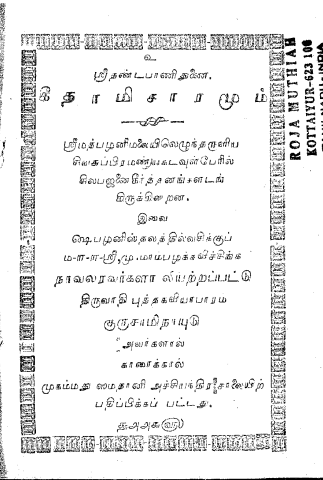 உ
ஸ்ரீதண்டபாணிதுணை.
கீதாமிசாரமும்
ஸ்ரீமத்பழனிமலையிலெழுந்தருளிய
சிவசுப்பிரமண்யகடவுள்பேரில்
சிலபஜனைகீர்த்தனங்களடங்
கிருக்கிறைன.
இவை
ஷெபழனிஸ்தலத்தில்வசிக்குப்
ம-ள-ள-ஸ்ரீ, மு. மாம்பழக்கவிச்சிங்க
நாவலரவர்களா லியற்றப்பட்டு
திருவாதி புத்தகவியாபாரம்
குருசாமிநாயுடு
அவர்களால்
காரைக்கால்
முகம்மது ஸமதானி அச்சியந்திரசாலையிற்
பதிப்பிக்கப் பட்டது.
ROJA MUTHIAH
KOTTAIYUR-623 106